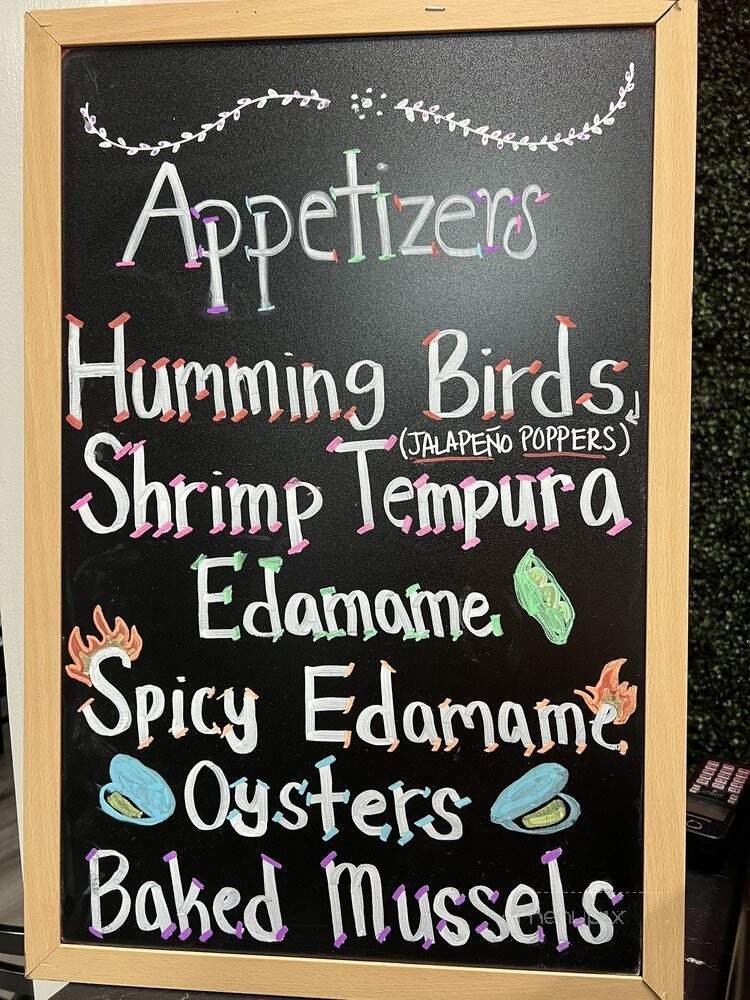 Appetizers
Humming Birds
(JALAPEÑO POPPERS)
Shrimp Tempura
Edamame
Spicy Edamame
Oysters
Baked Mussels
menupix